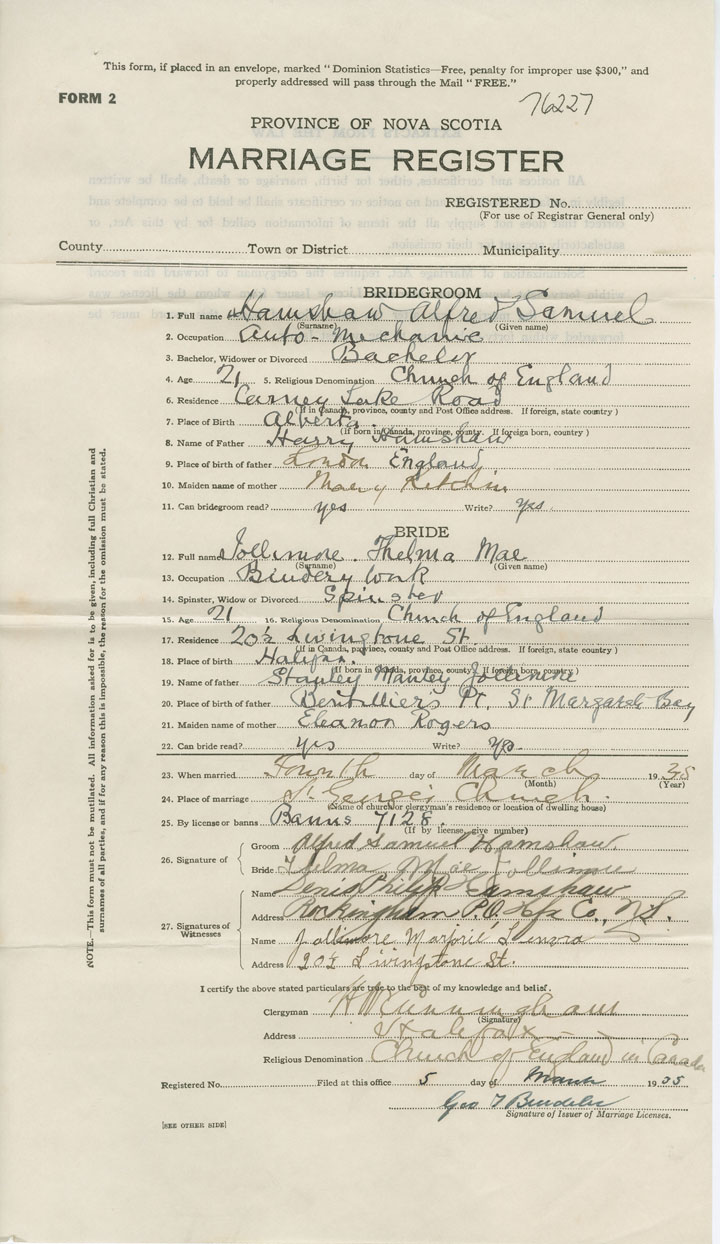 This form, if placed in an envelope, marked "Dominion Statistics—Free, penalty for improper use $300," and
properly addressed will pass through the Mail "FREE."
FORM 2
76227
PROVINCE OF NOVA SCOTIA
MARRIAGE REGISTER
REGISTERED No.
(For use of Registrar General only)
County Town or District Municipality
BRIDEGROOM
1. Full name Hamshaw Alfred Samuel
(Surname) (Given name)
2. Occupation Auto-Mechanic
3. Bachelor, Widower or Divorced Bachelor
4. Age 21 5. Religious Denomination Church of England
6. Residence Carney Lake Road
(If in Canada, province, county and Post Office address. If foreign, state country)
7. Place of Birth Alberta.
(If born in Canada, province, county. If foreign born, country)
8. Name of Father Harry Hamshaw
9. Place of birth of father London England
10. Maiden name of mother Mary Kitchin
11. Can bridegroom read? yes Write? yes.
BRIDE
12. Full name Jollimore. Thelma Mae
(Surname) (Given name)
13. Occupation Bindery Work
14. Spinster, Widow or Divorced Spinster
15. Age 21 16. Religious Denomination Church of England
17. Residence 20½ Livingstone St.
(If in Canada, province, county and Post Office address. If foreign, state country)
18. Place of birth Halifax.
(If born in Canada, province, county. If foreign born, country)
19. Name of father Stanley Manley Jollimore
20. Place of birth of father Pt. St Margarets Bay
21. Maiden name of mother Eleanor Rogers
22. Can bride read? yes Write? yes.
23. When married Fourth day of March 1935
(Month) (Year)
24. Place of marriage St. George's Church.
(Name of church or clergyman's residence or location of dwelling house)
25. By license or banns Banns 7128.
(If by license, give number)
26. Signature of
Groom Alfred Samuel Hamshaw.
Bride Thelma Mae Jollimore
27. Signatures of Witnesses
Name Denis Philip Hamshaw
Address Rockingham P.O. Hfx Co., N.S.
Name Jollimore Marjorie
Address 20½ Livingstone St.
I certify the above stated particulars are true to the best of my knowledge and belief.
Clergyman Cunningham
(Signature)
Address Halifax
Religious Denomination Church of England in Canada
Registered No. Filed at this office 5 day of March 1935
Geo
Signature of Issuer of Marriage Licenses.
[SEE OTHER SIDE]
NOTE.—This form must not be mutilated. All information asked for is to be given, including full Christian and
surnames of all parties, and if for any reason this is impossible, the reason for the omission must be stated.